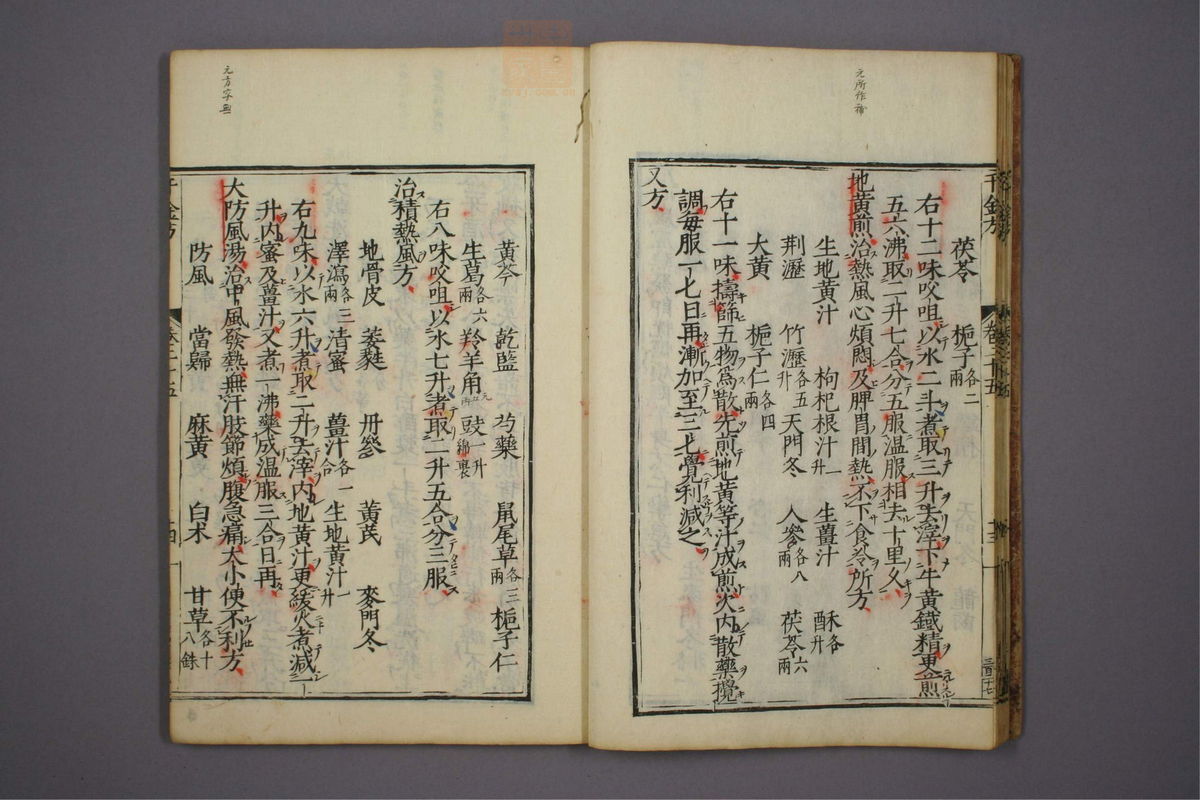 元所作補
千金方
卷二十五
茯苓 梔子各二兩
右十二味㕮咀以水二斗煮取三升去滓下牛黃鐵精更煎
五六沸取二升七合分五服温服相去十里久
地黃煎治熱風心煩悶及脾胃間熱不下食冷所方
生地黃汁 枸杞根汁一升 生薑汁 酥各升
荆瀝 竹瀝各五升 天門冬 人參各八兩 茯苓六
大黃 梔子仁各四兩
右十一味擣篩五物爲散先煎地黃等汁成煎次内散藥攪
調每服一七日再漸加至三七覺利減之
又方
元方字無
黃芩 乾藍 芍藥 鼠尾草各三兩 梔子仁
生葛各六兩 羚羊角 豉一升綿裹
右八味㕮咀以水七升煮取二升五合分三服
治積熱風方
地骨皮 萎蕤 丹參 黃芪 麥門冬
澤瀉各三兩 清蜜 薑汁各一合 生地黃汁一升
右九味以水六升煮取二升去滓内地黃汁更緩火煮減一
升内蜜及薑汁又煮一沸藥成温服三合日再
大防風湯治中風發熱無汗肢節煩腹急痛大小便不利方
防風 當歸 麻黃 白朮 甘草各十八銖